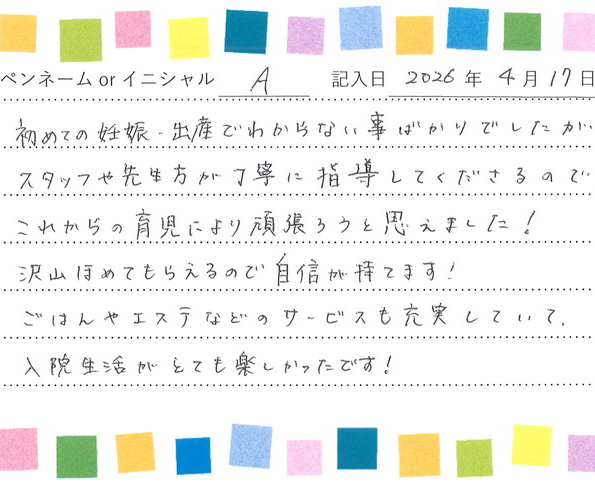 ペンネーム or イニシャル A 記入日 2026 年 4 月 17 日
初めての妊娠・出産でわからない事ばかりでしたが
スタッフや先生方が丁寧に指導してくださるので
これからの育児により頑張ろうと思えました!
沢山ほめてもらえるので自信が持てます!
ごはんやエステなどのサービスも充実していて、
入院生活がとても楽しかったです!